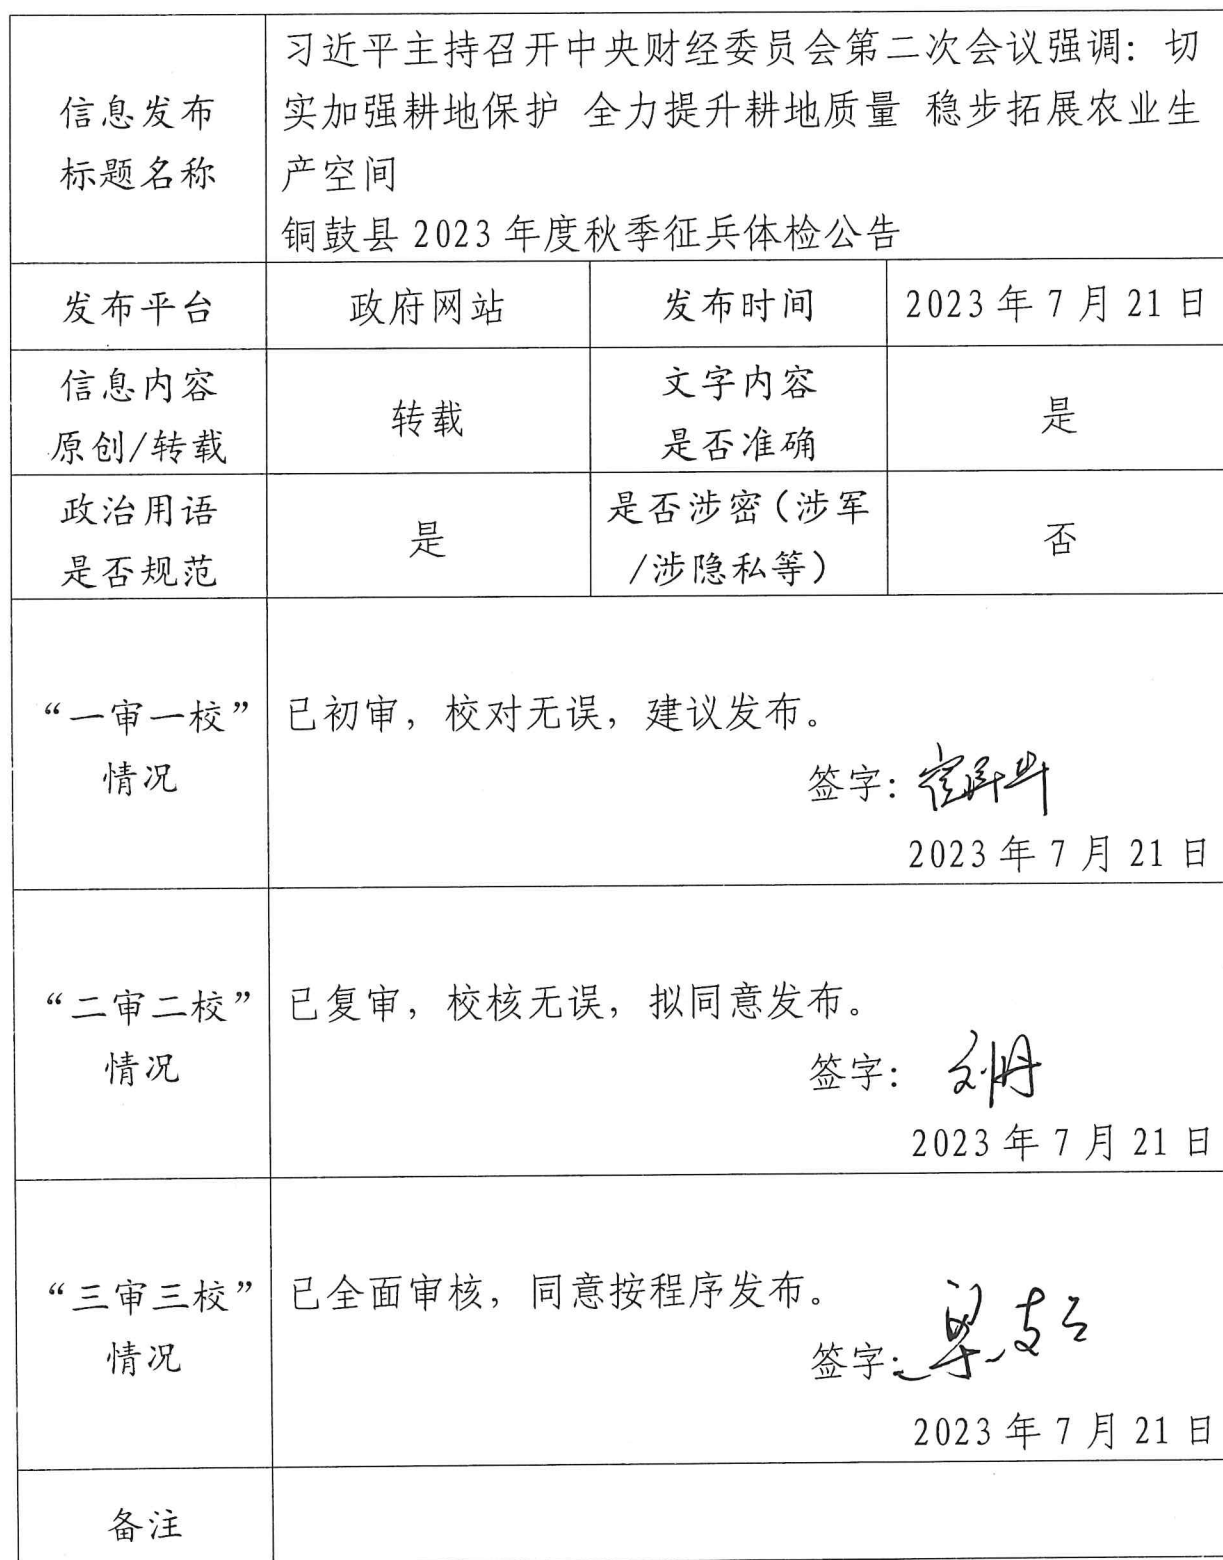 信息发布
标题名称
习近平主持召开中央财经委员会第二次会议强调：切
实加强耕地保护 全力提升耕地质量 稳步拓展农业生
产空间
铜鼓县 2023 年度秋季征兵体检公告
发布平台
政府网站
发布时间
2023 年 7 月 21 日
信息内容
原创/转载
转载
文字内容
是否准确
是
政治用语
是否规范
是
是否涉密（涉军
/涉隐私等）
否
“一审一校”
情况
已初审，校对无误，建议发布。
签字：
2023 年 7 月 21 日
“二审二校”
情况
已复审，校核无误，拟同意发布。
签字： 刘丹
2023 年 7 月 21 日
“三审三校”
情况
已全面审核，同意按程序发布。
签字：
2023 年 7 月 21 日
备注